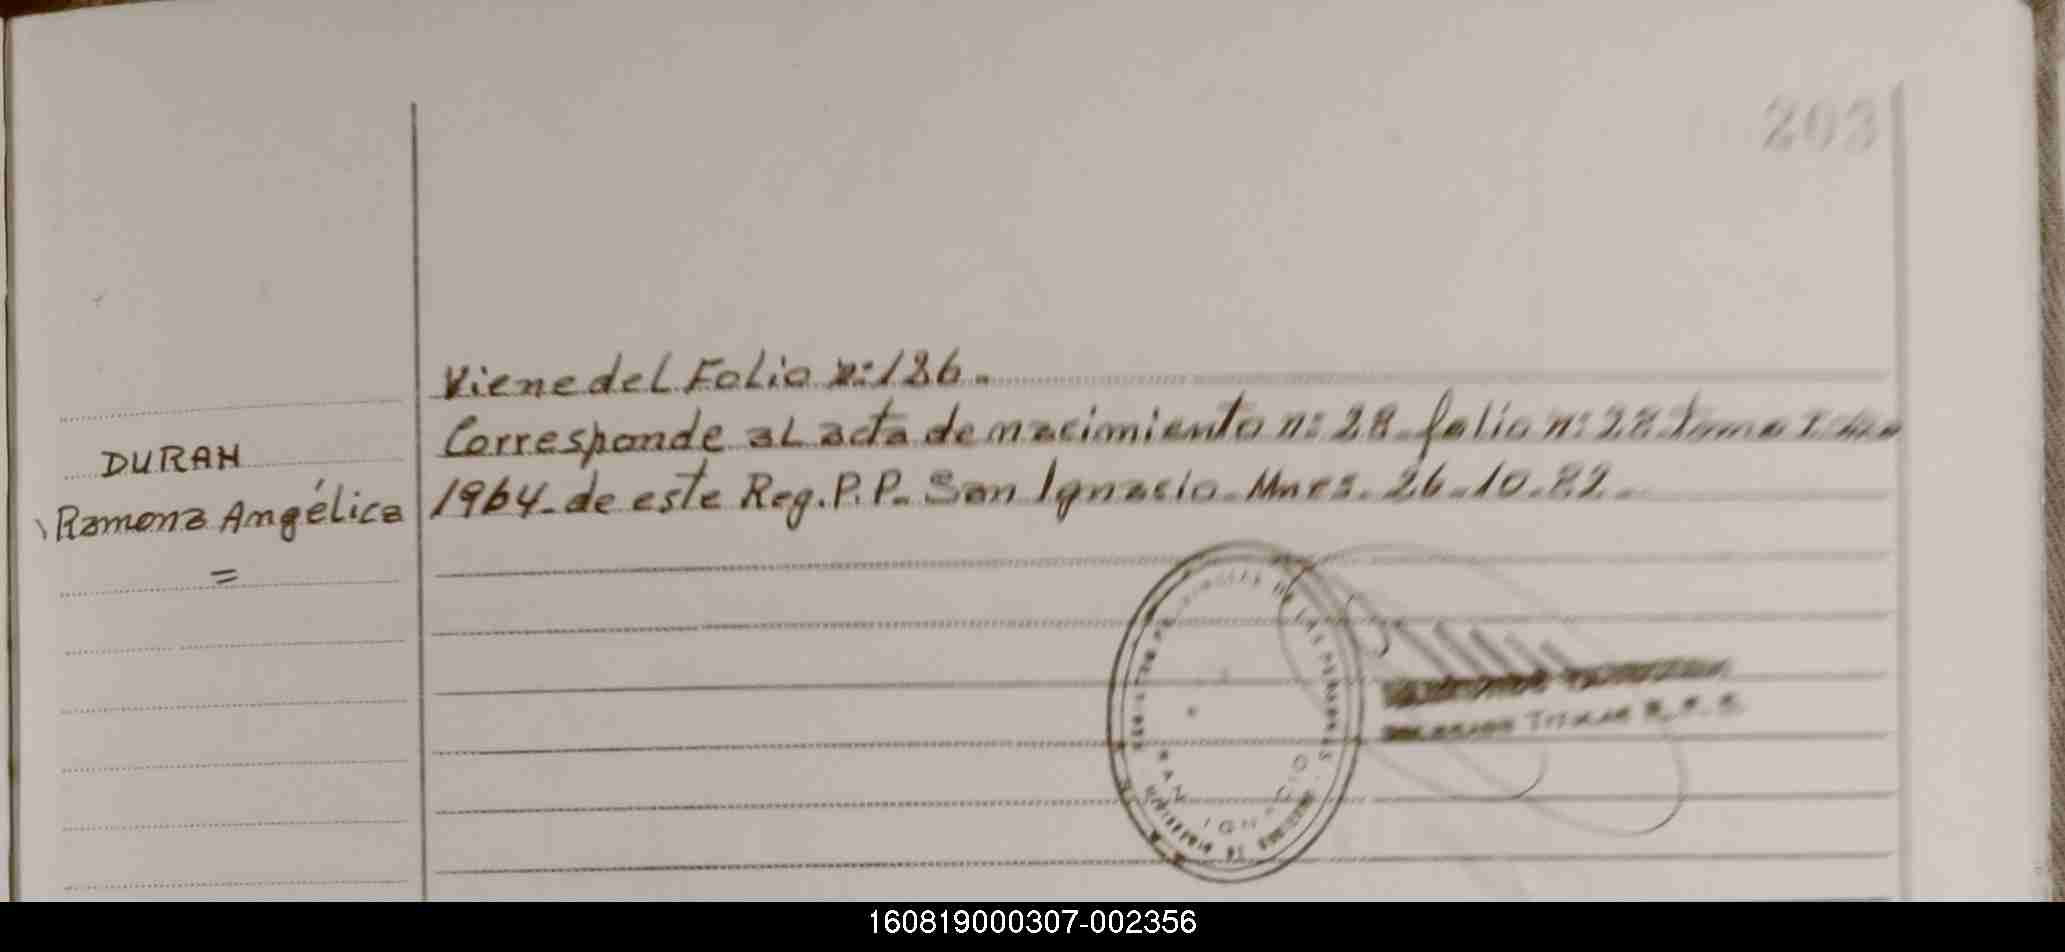 203
Viene del Folio n: 186.
DURAN
Corresponde al acta de nacimiento n: 28 folio n: 28 tomo I
Ramona Angélica
1964 de este Reg. P.P. San Ignacio. Mnes. 26.10.82.
=
DE LAS PERSONAS
SAN IGNACIO
TITULAR R. P. P.
160819000307-002356